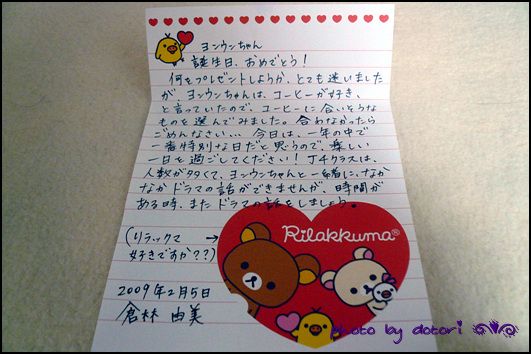 ヨンウンちゃん
誕生日、おめでとう!
何をプレゼントしようか、とても迷いました
が、ヨンウンちゃんは、コーヒーが好き、
と言っていたので、コーヒーに合いそうな
ものを選んでみました。合わなかったら
ごめんなさい... 今日は、一年の中で
一番特別な日だと思うので、楽しい
一日を過ごしてください! J4クラスは、
人数が多くて、ヨンウンちゃんと一緒に、なか
なかドラマの話ができませんが、時間が
ある時、またドラマの話をしましょう。
(リラックマ →
好きですか??)
Rilakkuma®
2009年2月5日
倉林 由美
photo by dotori